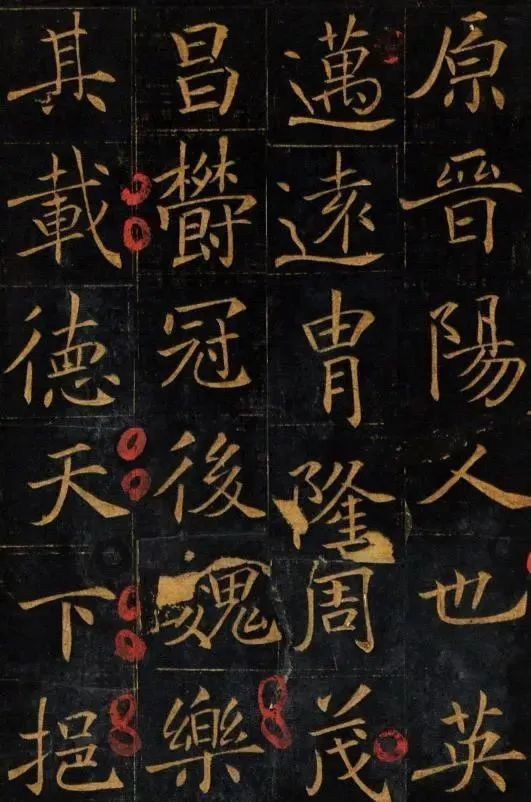 原晋陽人也英
邁遠胄隆周茂
昌鬱冠後魏樂
其載德天下挹